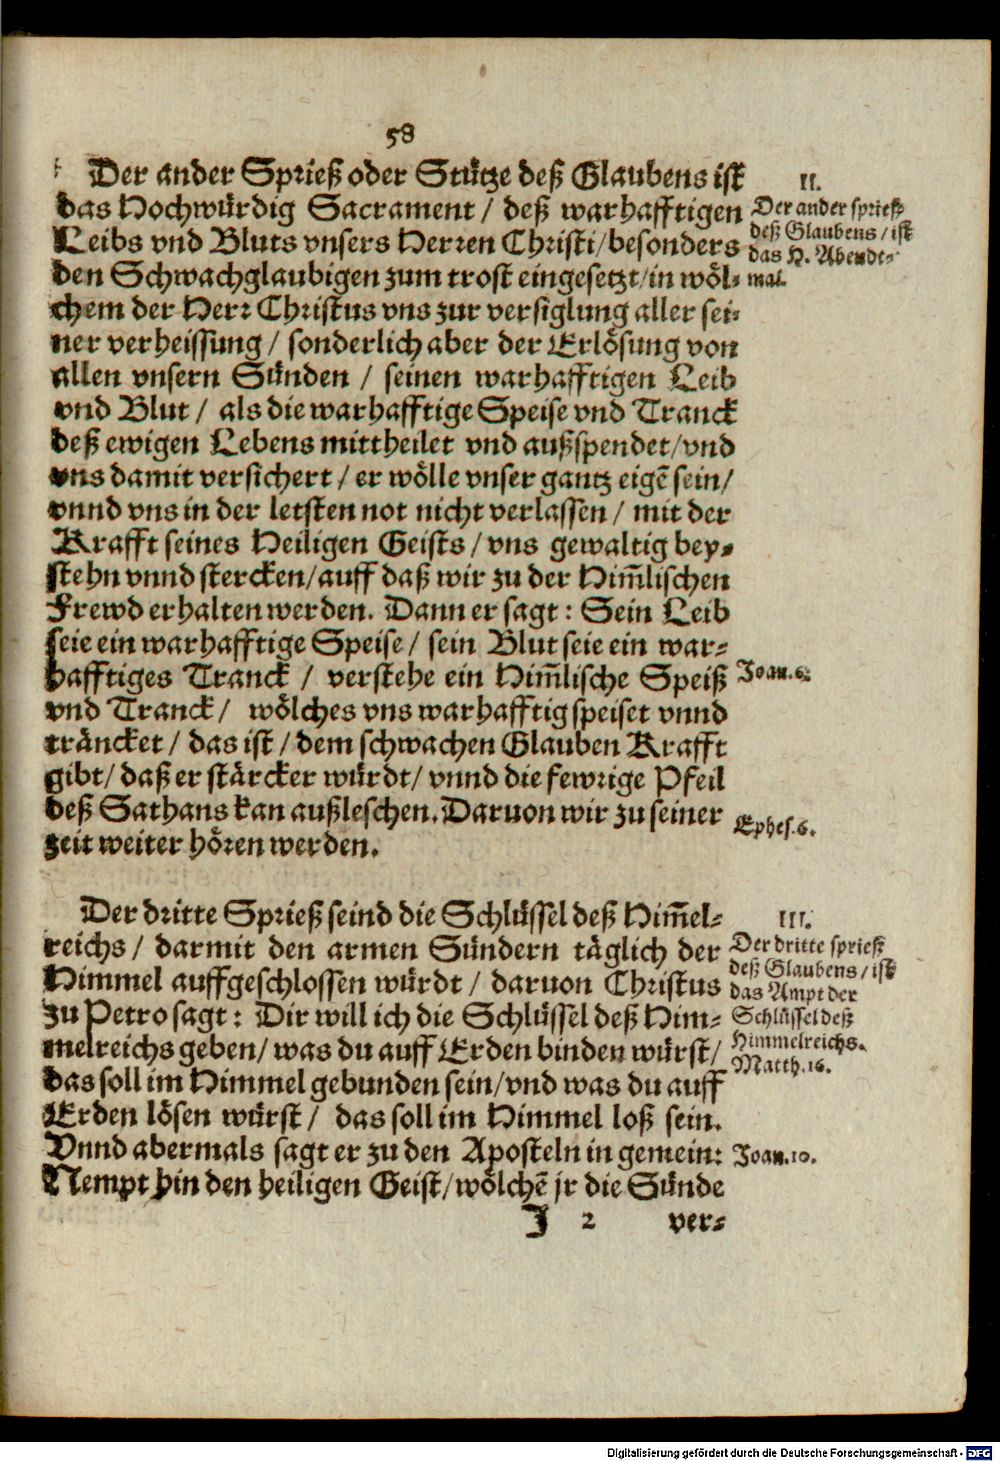 58
Der ander Sprieß oder Stütze deß Glaubens ist
das Hochwürdig Sacrament / deß warhafftigen
Leibs vnd Bluts vnsers Herren Christi / besonders
den Schwachglaubigen zum trost eingesetzt / in wöl-
chem der Herr Christus vns zur versiglung aller sei-
ner verheissung / sonderlich aber der Erlösung von
allen vnsern Sünden / seinen warhafftigen Leib
vnd Blut / als die warhafftige Speise vnd Tranck
deß ewigen Lebens mittheilet vnd außspendet / vnd
vns damit versichert / er wölle vnser gantz eigẽ sein /
vnnd vns in der letsten not nicht verlassen / mit der
Krafft seines Heiligen Geists / vns gewaltig bey-
stehn vnnd stercken / auff daß wir zu der Him̃lischen
Frewd erhalten werden. Dann er sagt: Sein Leib
seie ein warhafftige Speise / sein Blut seie ein war-
hafftiges Tranck / verstehe ein Him̃lische Speiß
vnd Tranck / wölches vns warhafftig speiset vnnd
träncket / das ist / dem schwachen Glauben Krafft
gibt / daß er stärcker würdt / vnnd die fewrige Pfeil
deß Sathans kan außleschen. Daruon wir zu seiner
zeit weiter hören werden.
II.
Der ander sprieß
deß Glaubens / ist
das H. Abendt-
mal.
Joan.6.
Ephes.6.
Der dritte Sprieß seind die Schlüssel deß Him̃el-
reichs / darmit den armen Sündern täglich der
Himmel auffgeschlossen würdt / daruon Christus
zu Petro sagt: Dir will ich die Schlüssel deß Him-
melreichs geben / was du auff Erden binden würst /
das soll im Himmel gebunden sein / vnd was du auff
Erden lösen würst / das soll im Himmel loß sein.
Vnnd abermals sagt er zu den Aposteln in gemein:
Nempt hin den heiligen Geist / wölchẽ jr die Sünde
III.
Der dritte sprieß
deß Glaubens / ist
das Ampt der
Schlüssel deß
Himmelreichs.
Matth.16.
Joan.10.
J 2 ver-
Digitalisierung gefördert durch die Deutsche Forschungsgemeinschaft - DFG